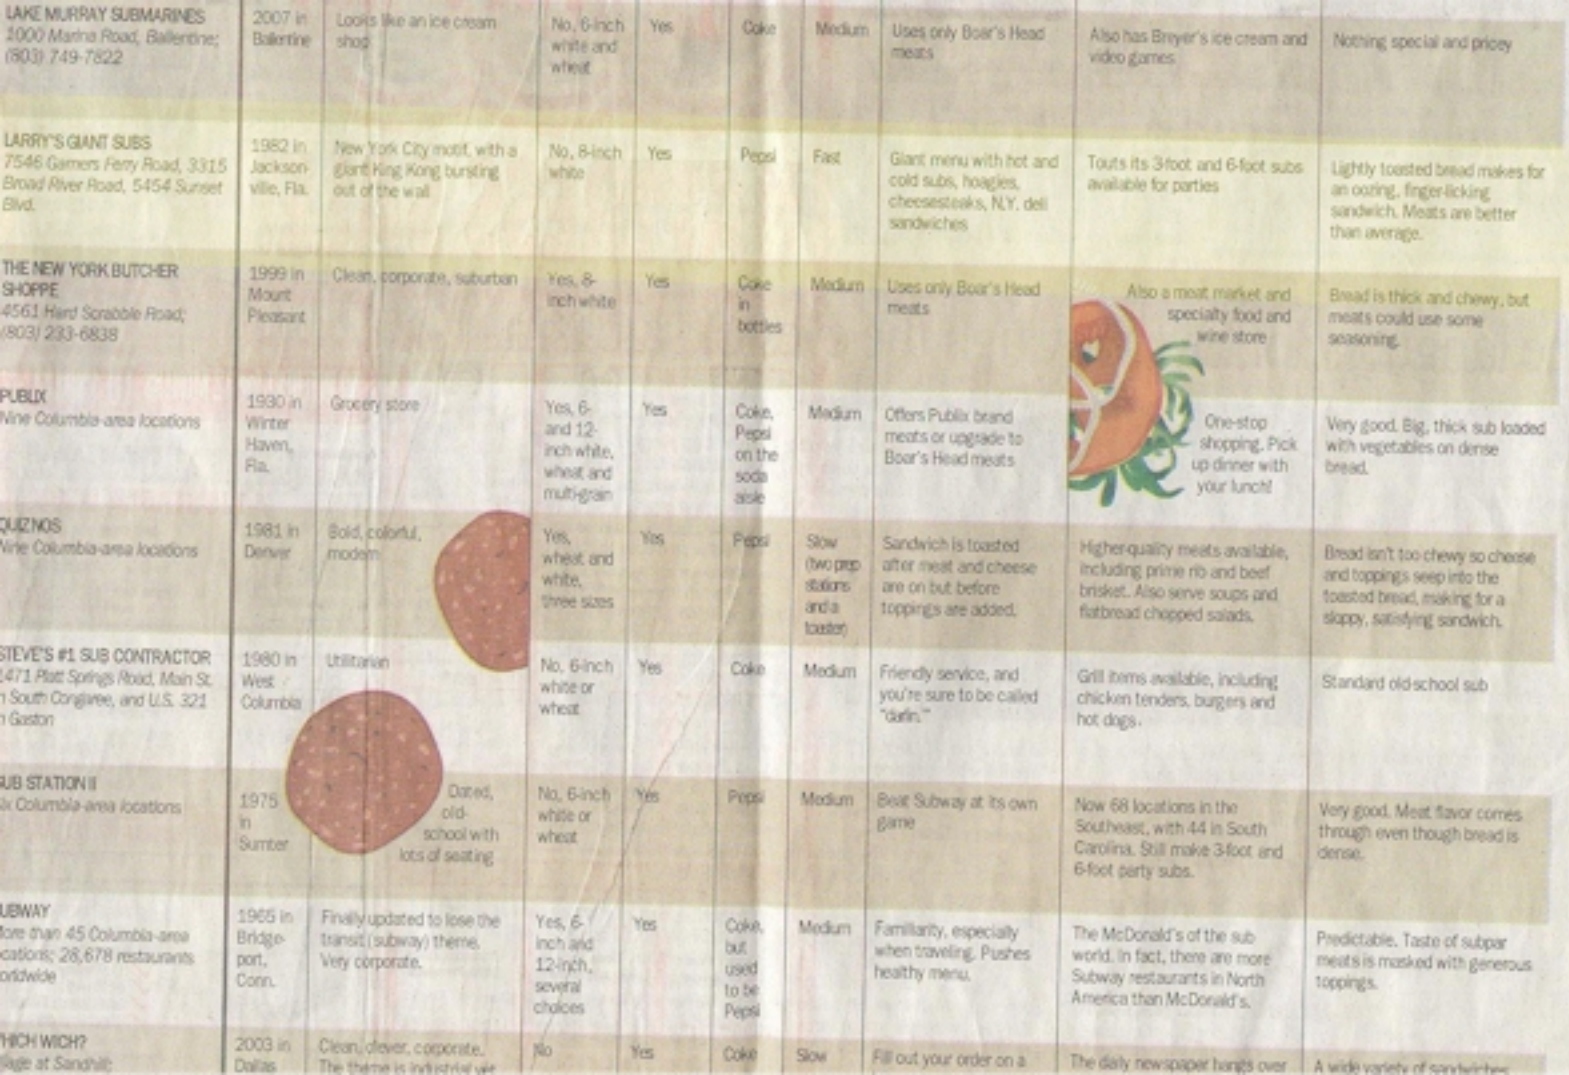 LAKE MURRAY SUBMARINES
1000 Marina Road, Ballentine;
(803) 749-7822
2007 in
Ballentine
Looks like an ice cream
shop
No, 6-inch
white and
wheat
Yes
Coke
Medium
Uses only Boar's Head
meats
Also has Breyer's ice cream and
video games
Nothing special and pricey
LARRY'S GIANT SUBS
7546 Garners Ferry Road, 3315
Broad River Road, 5454 Sunset
Blvd.
1982 in
Jackson-
ville, Fla.
New York City motif, with a
giant King Kong bursting
out of the wall
No, 8-inch
white
Yes
Pepsi
Fast
Giant menu with hot and
cold subs, hoagies,
cheesesteaks, N.Y. deli
sandwiches
Touts its 3-foot and 6-foot subs
available for parties
Lightly toasted bread makes for
an oozing, finger-licking
sandwich. Meats are better
than average.
THE NEW YORK BUTCHER
SHOPPE
4561 Hard Scrabble Road;
(803) 233-6838
1999 in
Mount
Pleasant
Clean, corporate, suburban
Yes, 8-
inch white
Yes
Coke
in
bottles
Medium
Uses only Boar's Head
meats
Also a meat market and
specialty food and
wine store
Bread is thick and chewy, but
meats could use some
seasoning.
PUBLIX
Nine Columbia-area locations
1930 in
Winter
Haven,
Fla.
Grocery store
Yes, 6-
and 12-
inch white,
wheat and
multi-grain
Yes
Coke,
Pepsi
on the
soda
aisle
Medium
Offers Publix brand
meats or upgrade to
Boar's Head meats
One-stop
shopping. Pick
up dinner with
your lunch!
Very good. Big, thick sub loaded
with vegetables on dense
bread.
QUIZNOS
Nine Columbia-area locations
1981 in
Denver
Bold, colorful,
modern
Yes,
wheat and
white,
three sizes
Yes
Pepsi
Slow
(two prep
stations
and a
toaster)
Sandwich is toasted
after meat and cheese
are on but before
toppings are added.
Higher-quality meats available,
including prime rib and beef
brisket. Also serve soups and
flatbread chopped salads.
Bread isn't too chewy so cheese
and toppings seep into the
toasted bread, making for a
sloppy, satisfying sandwich.
STEVE'S #1 SUB CONTRACTOR
1471 Platt Springs Road, Main St.
n South Congaree, and U.S. 321
n Gaston
1980 in
West
Columbia
Utilitarian
No, 6-inch
white or
wheat
Yes
Coke
Medium
Friendly service, and
you're sure to be called
"darlin."
Grill items available, including
chicken tenders, burgers and
hot dogs.
Standard old-school sub
SUB STATION II
ix Columbia-area locations
1975
in
Sumter
Dated,
old-
school with
lots of seating
No, 6-inch
white or
wheat
Yes
Pepsi
Medium
Beat Subway at its own
game
Now 68 locations in the
Southeast, with 44 in South
Carolina. Still make 3-foot and
6-foot party subs.
Very good. Meat flavor comes
through even though bread is
dense.
UBWAY
ore than 45 Columbia-area
cations; 28,678 restaurants
orldwide
1965 in
Bridge-
port,
Conn.
Finally updated to lose the
transit (subway) theme.
Very corporate.
Yes, 6-
inch and
12-inch,
several
choices
Yes
Coke,
but
used
to be
Pepsi
Medium
Familiarity, especially
when traveling. Pushes
healthy menu.
The McDonald's of the sub
world. In fact, there are more
Subway restaurants in North
America than McDonald's.
Predictable. Taste of subpar
meats is masked with generous
toppings.
HICH WICH?
lage at Sandhill;
2003 in
Dallas
Clean, clever, corporate.
The theme is industrial
No
Yes
Coke
Slow
Fill out your order on a
The daily newspaper hangs over
A wide variety of sandwiches